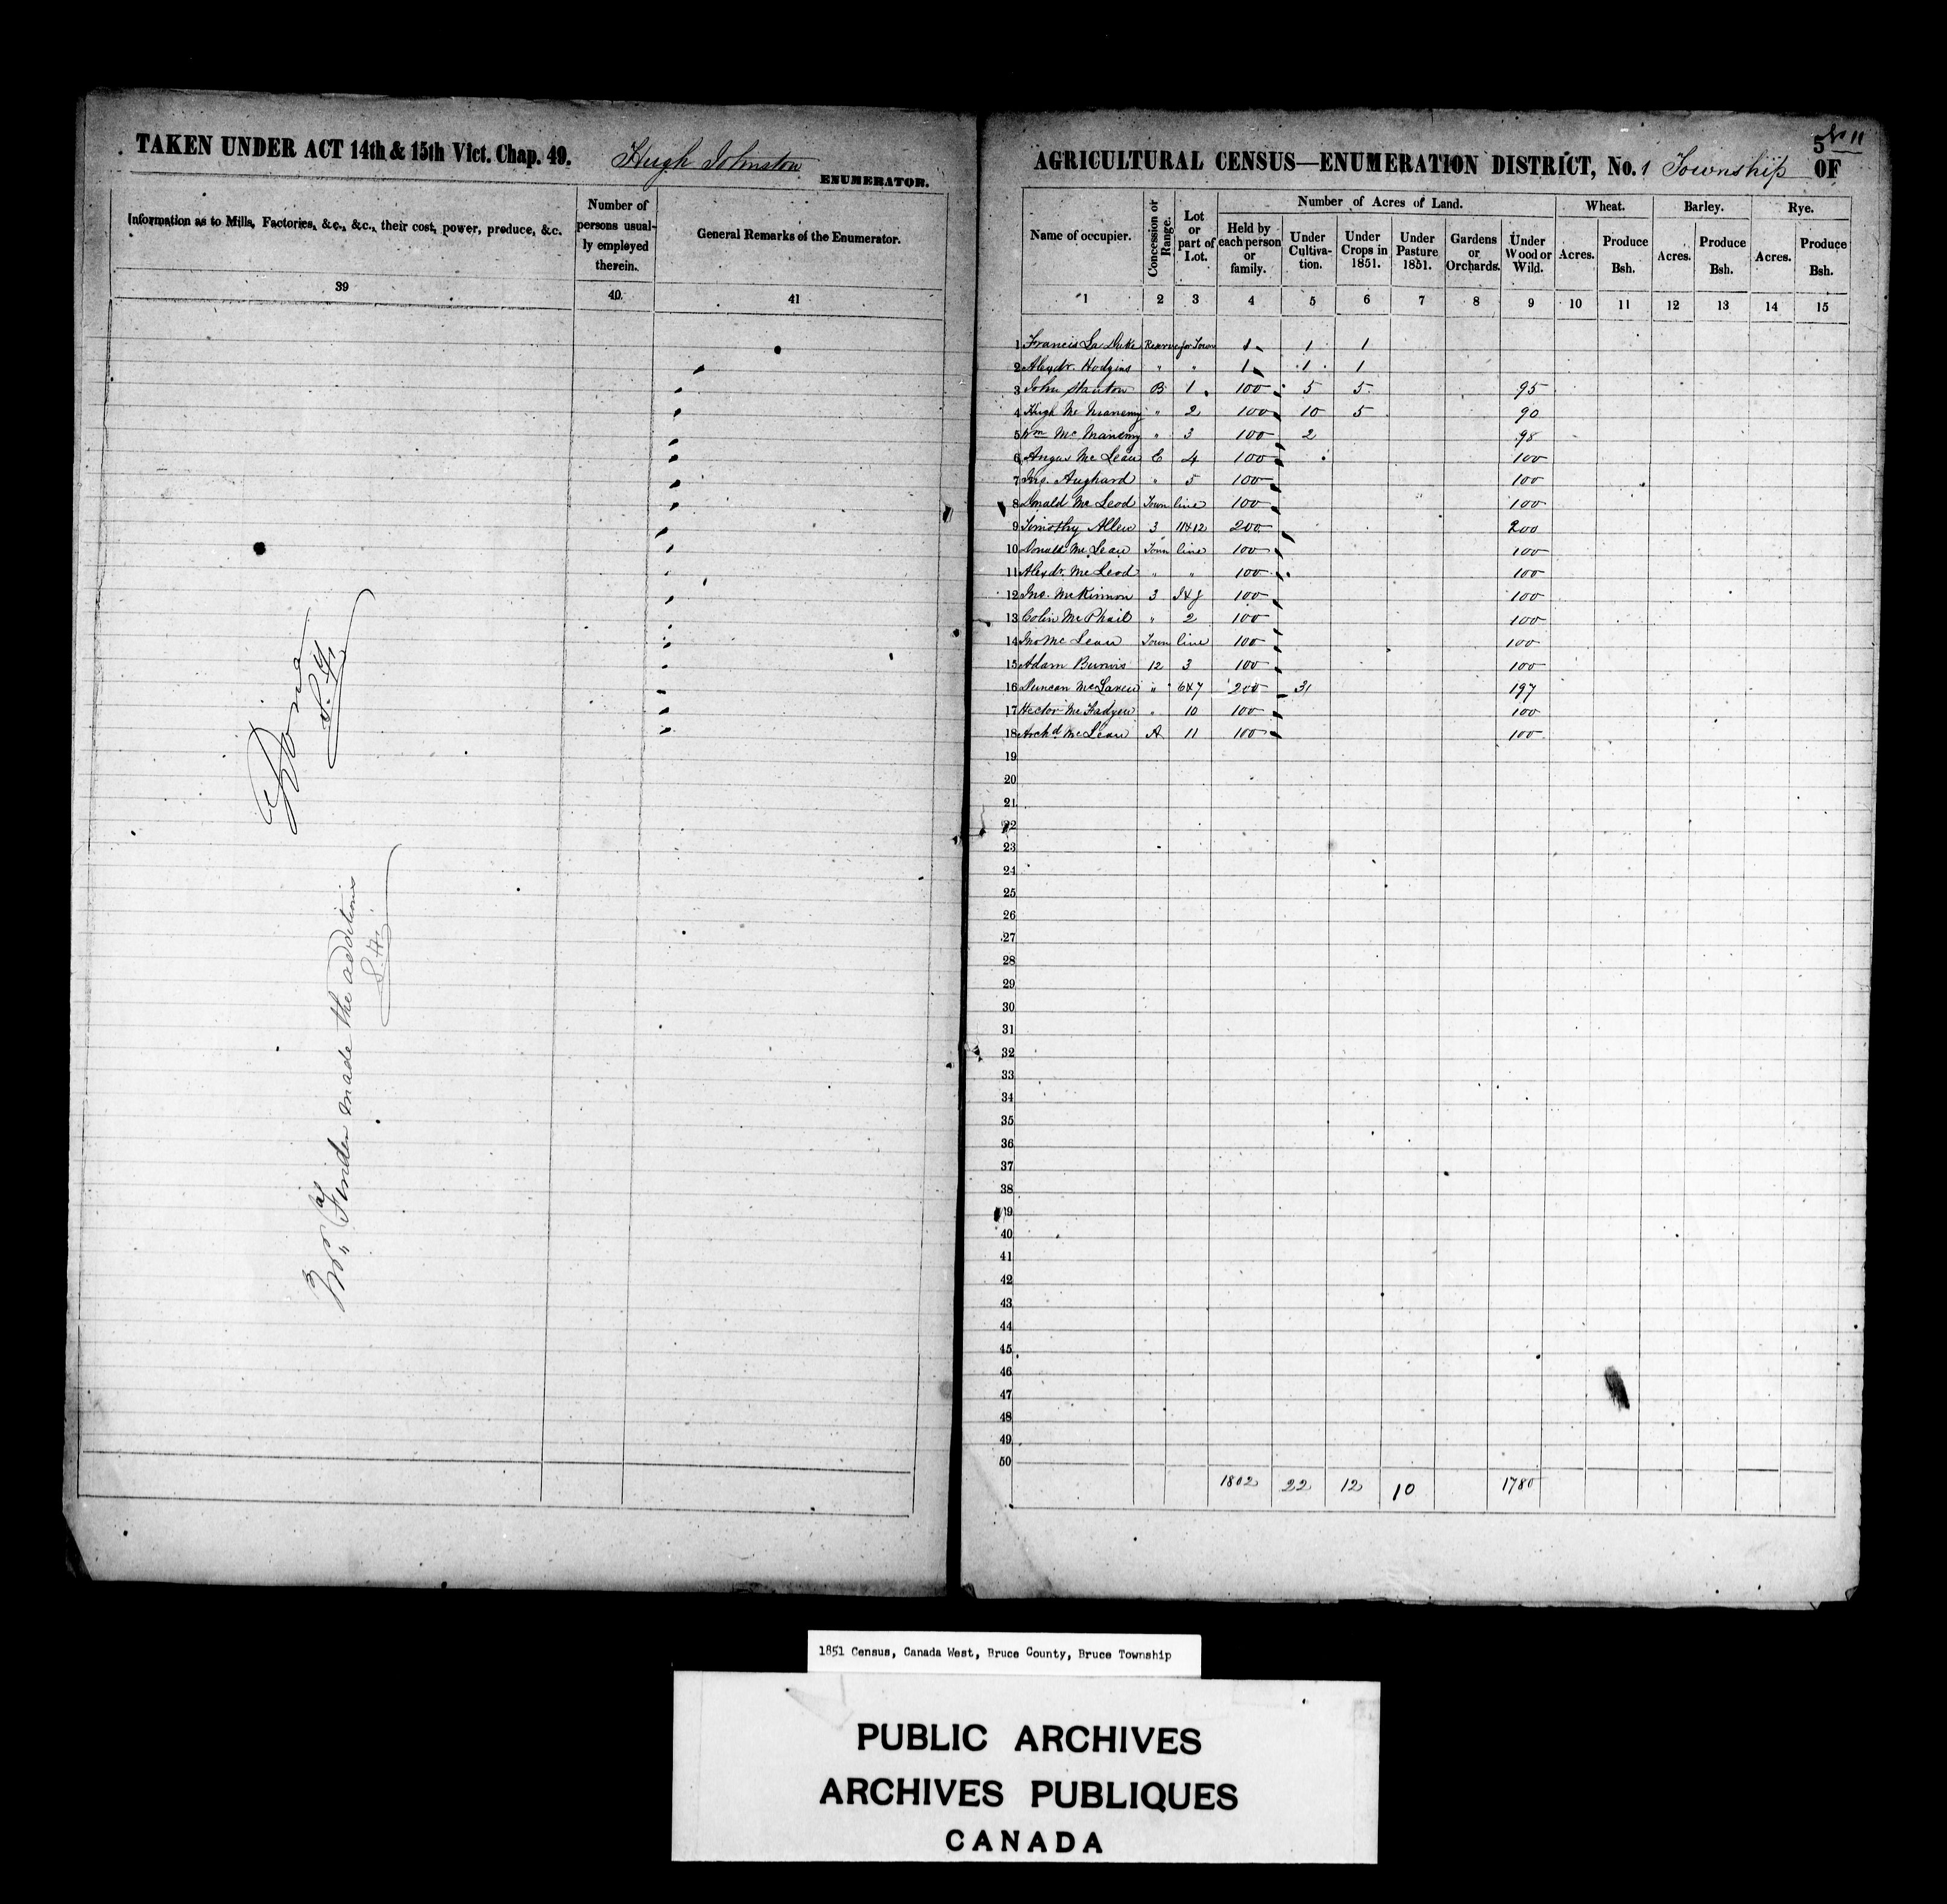 TAKEN UNDER ACT 14th & 15th Vict. Chap. 49. Hugh Johnston
ENUMERATOR.
Information as to Mills, Factories, &c., &c., their cost, power, produce, &c.
Number of persons usually employed therein.
General Remarks of the Enumerator.
39 40 41
made the additions
5 No 11
AGRICULTURAL CENSUS—ENUMERATION DISTRICT, No. 1 Township OF
Name of occupier.
Concession or Range.
Lot or part of Lot.
Number of Acres of Land.
Held by each person or family.
Under Cultivation.
Under Crops in 1851.
Under Pasture 1851.
Gardens or Orchards.
Under Wood or Wild.
Wheat.
Acres.
Produce Bsh.
Barley.
Acres.
Produce Bsh.
Rye.
Acres.
Produce Bsh.
1 2 3 4 5 6 7 8 9 10 11 12 13 14 15
1 Francis La Duke Reserve for Town 1 1 1
2 Alexdr. Hodgins " " 1 1 1
3 John Stanton B 1 100 5 5 95
4 Hugh Mc " 2 100 10 5 90
5 Wm Mc " 3 100 2 98
6 Angus Mc Lean C 4 100 100
7 Jno. " 5 100 100
8 Donald Mc Leod Town line 100 100
9 Timothy Allen 3 11 & 12 200 200
10 Donald Mc Lean Town line 100 100
11 Alexdr. Mc Leod " " 100 100
12 Jno. McKinnon 3 100 100
13 Colin Mc Phail " 2 100 100
14 Jno Mc Lean Town line 100 100
15 Adam 12 3 100 100
16 Duncan McLaren " 6 & 7 200 3 197
17 Hector Mc Fadyen " 10 100 100
18 Archd McLean A 11 100 100
19
20
21
22
23
24
25
26
27
28
29
30
31
32
33
34
35
36
37
38
39
40
41
42
43
44
45
46
47
48
49
50
1802 22 12 10 1780
1851 Census, Canada West, Bruce County, Bruce Township
PUBLIC ARCHIVES
ARCHIVES PUBLIQUES
CANADA